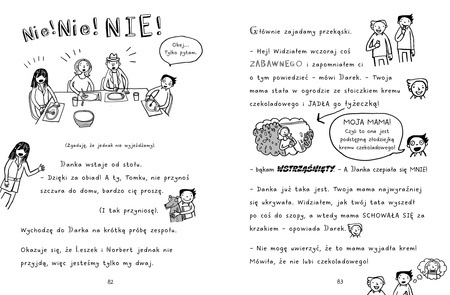 Nie! Nie! NIE!
Okej...
Tylko pytam.
(Zgaduję, że jednak nie wyjeżdżamy).
Danka wstaje od stołu.
– Dzięki za obiad! A ty, Tomku, nie przynoś
szczura do domu, bardzo cię proszę.
(I tak przyniosę).
Wychodzę do Darka na krótką próbę zespołu.
Okazuje się, że Leszek i Norbert jednak nie
przyjdą, więc jesteśmy tylko my dwaj.
82
Głównie zajadamy przekąski.
– Hej! Widziałem wczoraj coś
ZABAWNEGO i zapomniałem ci
o tym powiedzieć – mówi Darek. – Twoja
mama stała w ogrodzie ze słoiczkiem kremu
czekoladowego i JADŁA go łyżeczką!
MOJA MAMA!
Czyli to ona jest
podstępną złodziejką
kremu czekoladowego!
– bąkam WSTRZĄŚNIĘTY. – A Danka czepiała się MNIE!
– Danka już taka jest. Twoja mama najwyraźniej
się ukrywała. Widziałem, jak twój tata wyszedł
po coś do szopy, a wtedy mama SCHOWAŁA SIĘ za
krzakiem – opowiada Darek.
– Nie mogę uwierzyć, że to mama wyjadła krem!
Mówiła, że nie lubi czekoladowego!
83